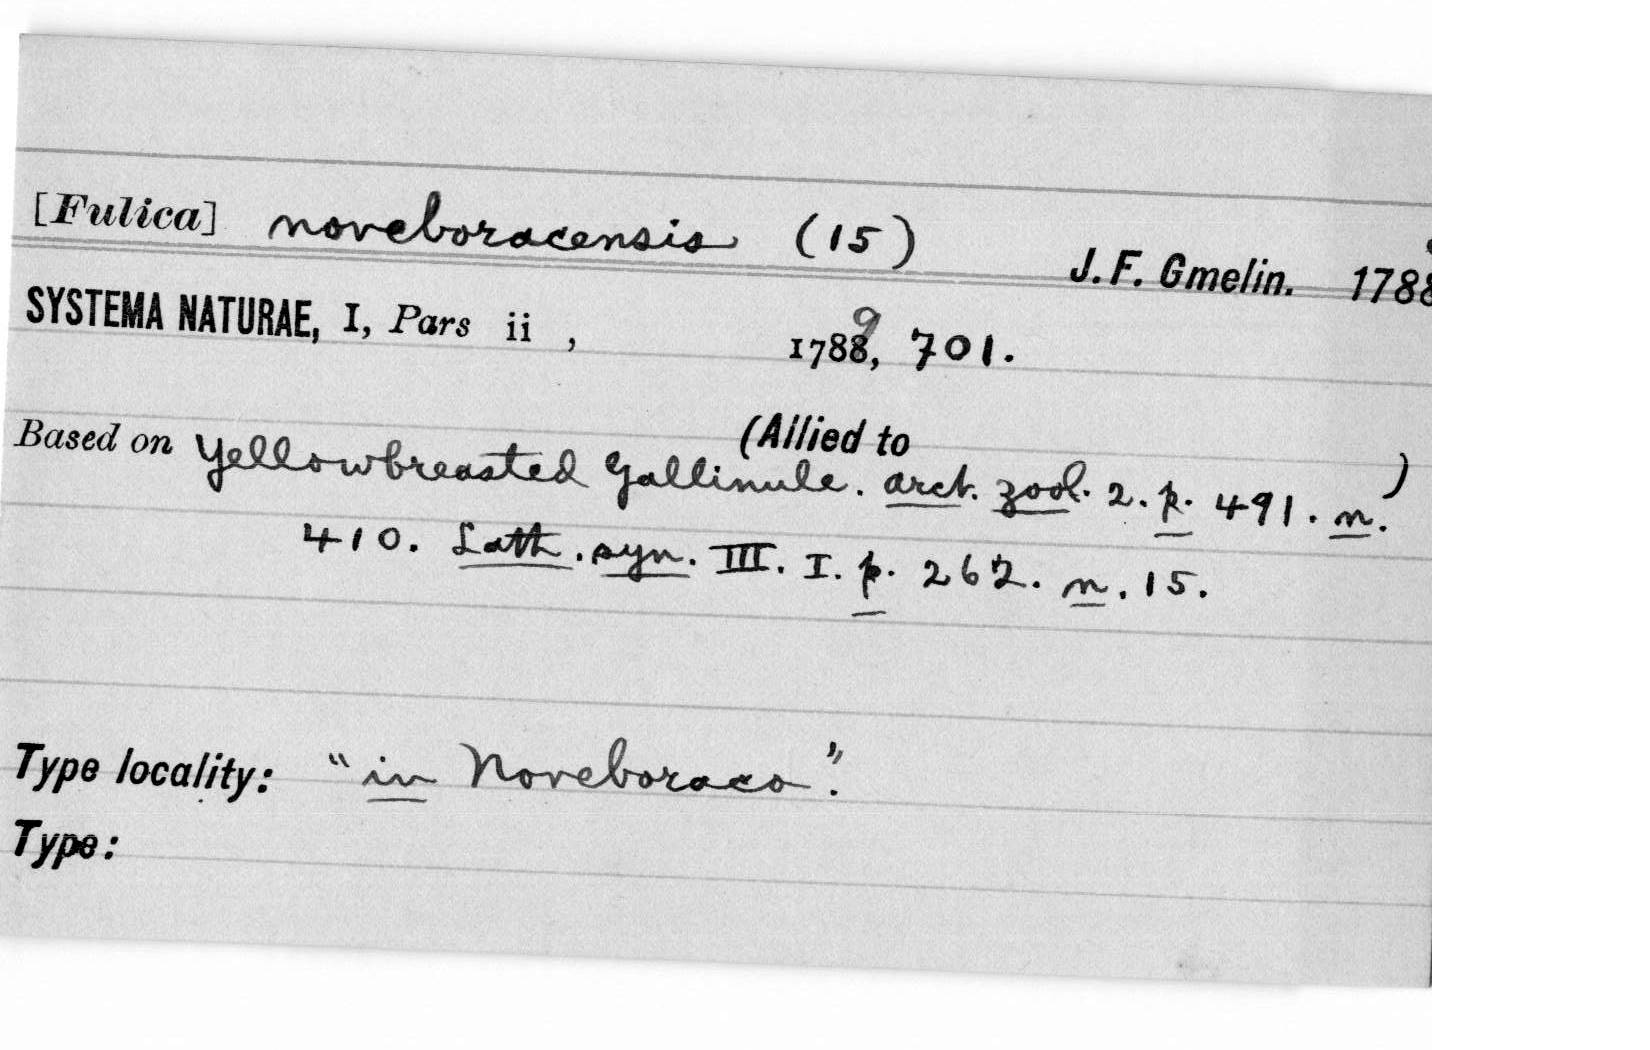 [Fulica] noveboracensis (15)
J. F. Gmelin. 1788
SYSTEMA NATURAE, I, Pars ii , 1788, 9 701.
(Allied to )
Based on Yellowbreasted Gallinule. arct. zool. 2. p. 491. n.
410. Lath. syn. III. I. p. 262. n. 15.
Type locality: "in Noveboraco".
Type: